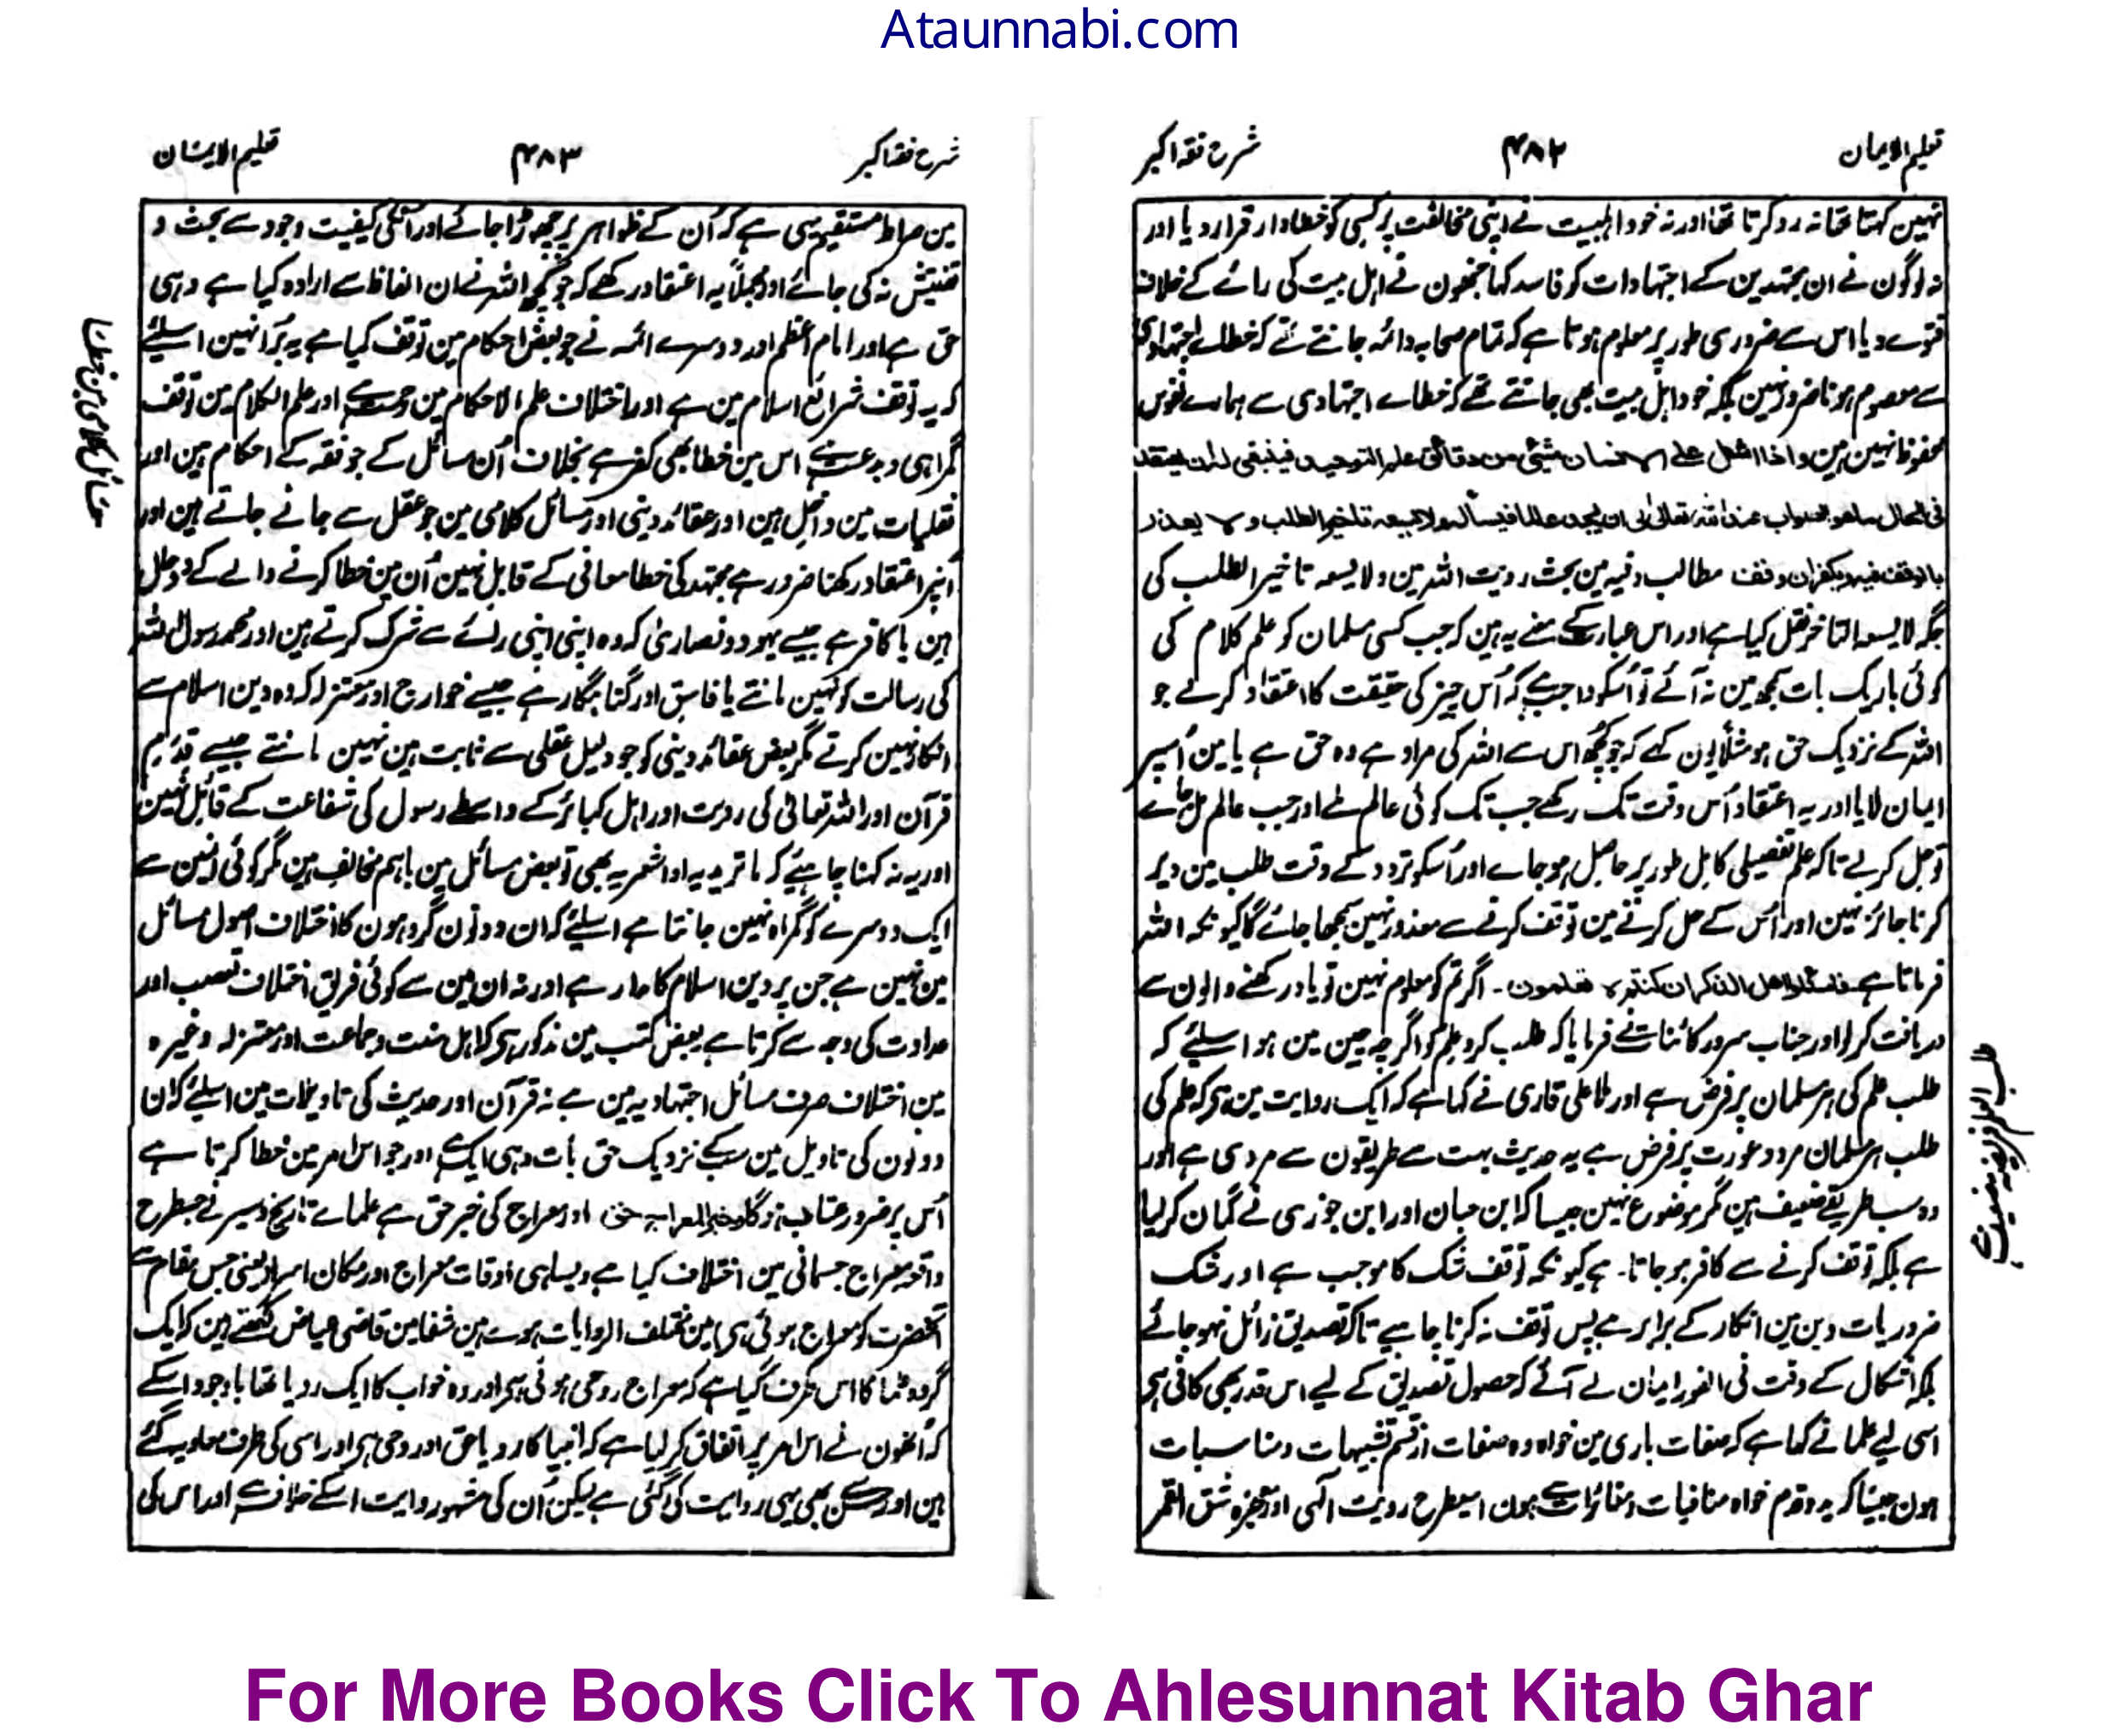 Ataunnabi.com
تعلیم الایمان ۴۸۲ شرح فقہ اکبر
نہین کہتا تھا نہ رد کرتا تھا اور نہ خود اہلبیت نے اپنی مخالفت پر کسی کو خطاوار قرار دیا اور
نہ لوگون نے ان مجتہدین کے اجتہادات کو فاسد کہا جنھون نے اہل بیت کی رائے کے خلاف
فتوے دیا اس سے ضروری طور پر معلوم ہوتا ہے کہ تمام صحابہ و ائمہ جانتے تھے کہ خطاے اجتہادی
سے معصوم ہونا ضرور نہین بلکہ خود اہل بیت بھی جانتے تھے کہ خطاے اجتہادی سے ہمارے نفوس
محفوظ نہین ہین واذا اشکل علی الانسان شیئ من دقائق علم التوحید فینبغی لہ ان یعتقد
فی الحال ما هو الصواب عند الله تعالی الی ان یجد عالما فیسألہ ولا یسعہ تاخیر الطلب ولا یعذر
بالوقف فیہ ویکفر ان وقف مطالب وفیہ مین بحث رویت اللہ مین ولا یسعہ تاخیر الطلب کی
جگہ لا یسعہ التاخر نقل کیا ہے اور اس عبارت کے معنے یہ ہین کہ جب کسی مسلمان کو علم کلام کی
کوئی باریک بات سمجھ مین نہ آئے تو اُسکو واجب ہے کہ اُس چیز کی حقیقت کا اعتقاد کرلے جو
اللہ کے نزدیک حق ہو مثلاً یون کہے کہ جو کچھ اس سے اللہ کی مراد ہے وہ حق ہے یا مین اُسپر
ایمان لایا اور یہ اعتقاد اُس وقت تک رکھے جب تک کوئی عالم ملے اور جب عالم مل جاے
تو حل کرلے تاکہ علم تفصیلی کامل طور پر حاصل ہو جاے اور اُسکو تردد کے وقت طلب مین دیر
کرنا جائز نہین اور اُس کے حل کرنے مین توقف کرنے سے معذور نہین سمجھا جائے گا کیونکہ اللہ
فرماتا ہے فاسئلوا اهل الذکر ان کنتم لا تعلمون۔ اگر تم کو معلوم نہین تو یاد رکھنے والون سے
دریافت کرلو اور جناب سرور کائنات نے فرمایا کہ طلب کرو علم کو اگرچہ چین مین ہو اسلیئے کہ
طلب علم کی ہر مسلمان پر فرض ہے اور ملا علی قاری نے کہا ہے کہ ایک روایت مین ہے کہ علم کی
طلب ہر مسلمان مرد و عورت پر فرض ہے یہ حدیث بہت سے طریقون سے مروی ہے اور
وہ سب طریقے ضعیف ہین مگر موضوع نہین جیسا کہ ابن حبان اور ابن جوزی نے گمان کرلیا
ہے بلکہ توقف کرنے سے کافر ہو جاتا۔ ہے کیونکہ توقف شک کا موجب ہے اور شک
ضروریات دین مین انکار کے برابر ہے پس توقف نہ کرنا چاہیے تاکہ تصدیق زائل نہو جائے
بلکہ اشکال کے وقت فی الفور ایمان لے آئے کہ حصول تصدیق کے لیے اس قدر بھی کافی ہے
اسی لیے علما نے کہا ہے کہ صفات باری مین خواہ وہ صفات از قسم تشبیہات و مناسبات
ہون جیسا کہ ید و قدم خواہ منافیات و مغائرات سے ہون اسیطرح رویت الٰہی اور معجزہ شق القمر
طلب العلم فریضۃ ضعیف ہے
شرح فقہ اکبر ۴۸۳ تعلیم الایمان
مین صراط مستقیم یہی ہے کہ اُن کے ظواہر پر چھوڑا جائے اور انکی کیفیت وجود سے بحث و
تفتیش نہ کی جائے اور مجملاً یہ اعتقاد رکھے کہ جو کچھ اللہ نے ان الفاظ سے ارادہ کیا ہے وہی
حق ہے اور امام اعظم اور دوسرے ائمہ نے جو بعض احکام مین توقف کیا ہے یہ بُرا نہین اسلیئے
کہ یہ توقف شرائع اسلام مین ہے اور اختلاف علم الاحکام مین رحمت ہے اور علم الکلام مین توقف
گمراہی و بدعت ہے اس مین خطا بھی کفر ہے بخلاف اُن مسائل کے جو فقہ کے احکام ہین اور
نقلیات مین داخل ہین اور عقائد دینی اور مسائل کلامی مین جو عقل سے جانے جاتے ہین اور
اُنپر اعتقاد رکھنا ضرور ہے مجتہد کی خطا معافی کے قابل نہین اُن مین خطا کرنے والے کے دو حال
ہین یا کافر ہے جیسے یہود و نصاریٰ کہ وہ اپنی اپنی رائے سے شرک کرتے ہین اور محمد رسول اللہ
کی رسالت کو نہین مانتے یا فاسق اور گنہگار ہے جیسے خوارج اور معتزلہ کہ وہ دین اسلام سے
انکار نہین کرتے مگر بعض عقائد دینی کو جو دلیل عقلی سے ثابت ہین نہین مانتے جیسے قدم
قرآن اور اللہ تعالی کی رویت اور اہل کبائر کے واسطے رسول کی شفاعت کے قائل نہین
اور یہ نہ کہنا چاہیئے کہ ماتریدیہ اور اشعریہ بھی تو بعض مسائل مین باہم مخالف ہین مگر کوئی اُنمین سے
ایک دوسرے کو گمراہ نہین جانتا ہے اسلیئے کہ ان دونون گروہون کا اختلاف اصول مسائل
مین نہین ہے جن پر دین اسلام کا مدار ہے اور نہ ان مین سے کوئی فریق اختلاف تعصب اور
عداوت کی وجہ سے کرتا ہے بعض کتب مین مذکور ہے کہ اہل سنت و جماعت اور معتزلہ وغیرہ
مین اختلاف صرف مسائل اجتہادیہ مین ہے نہ قرآن اور حدیث کی تاویلات مین اسلیئے کہ ان
دونون کی تاویل مین سب کے نزدیک حق بات وہی ایک ہے اور جو اس امر مین خطا کرتا ہے
اُس پر ضرور عتاب ہوگا وخبر المعراج حق اور معراج کی خبر حق ہے علماے تاریخ و سیر نے جسطرح
واقعہ معراج جسمانی مین اختلاف کیا ہے ویسا ہی اوقات معراج اور مکان اسرا یعنی جس مقام سے
آنحضرت کو معراج ہوئی ہے مین مختلف الروایات ہوے ہین شفا مین قاضی عیاض لکھتے ہین کہ ایک
گروہ علما کا اس طرف گیا ہے کہ معراج روحی ہوئی ہے اور وہ خواب کا ایک رویا تھا باوجود اسکے
کہ اُنھون نے اس امر پر اتفاق کرلیا ہے کہ انبیا کا رویا حق اور وحی ہے اور اسی کی طرف معاویہ گئے
ہین اور حسن سے بھی یہی روایت کی گئی ہے لیکن اُن کی مشہور روایت اسکے خلاف ہے اور اس کی
For More Books Click To Ahlesunnat Kitab Ghar